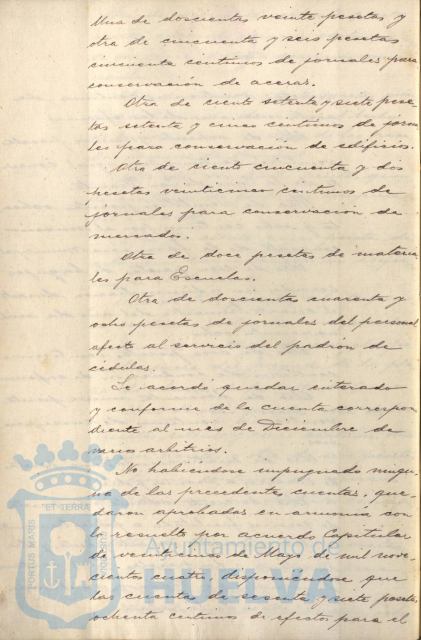 Una de doscientas veinte pesetas y
otra de cincuenta y seis pesetas
cincuenta centimos de jornales para
conservación de aceras.
Otra de ciento setenta y siete pese
tas setenta y cinco centimos de jorna
les para conservación de edificios.
Otra de ciento cincuenta y dos
pesetas veinticinco centimos de
jornales para conservación de
mercados.
Otra de doce pesetas de materia
les para Escuelas.
Otra de doscientas cuarenta y
ocho pesetas de jornales del personal
afecto al servicio del padrón de
cédulas.
Se acordó quedar enterado
y conforme de la cuenta correspon
diente al mes de Diciembre de
varios arbitrios.
No habiendose impugnado ningu
na de las precedentes cuentas, que
daron aprobadas en armonia con
lo resuelto por acuerdo Capitular
de Mayo de mil nove
cientos cuatro, disponiendose que
las cuenta de sesenta y siete pesetas
ochenta centimos de efectos para el
PORTUS MARIS
ET TERRÆ
CUSTODIA
Ayuntamiento de
HUELVA